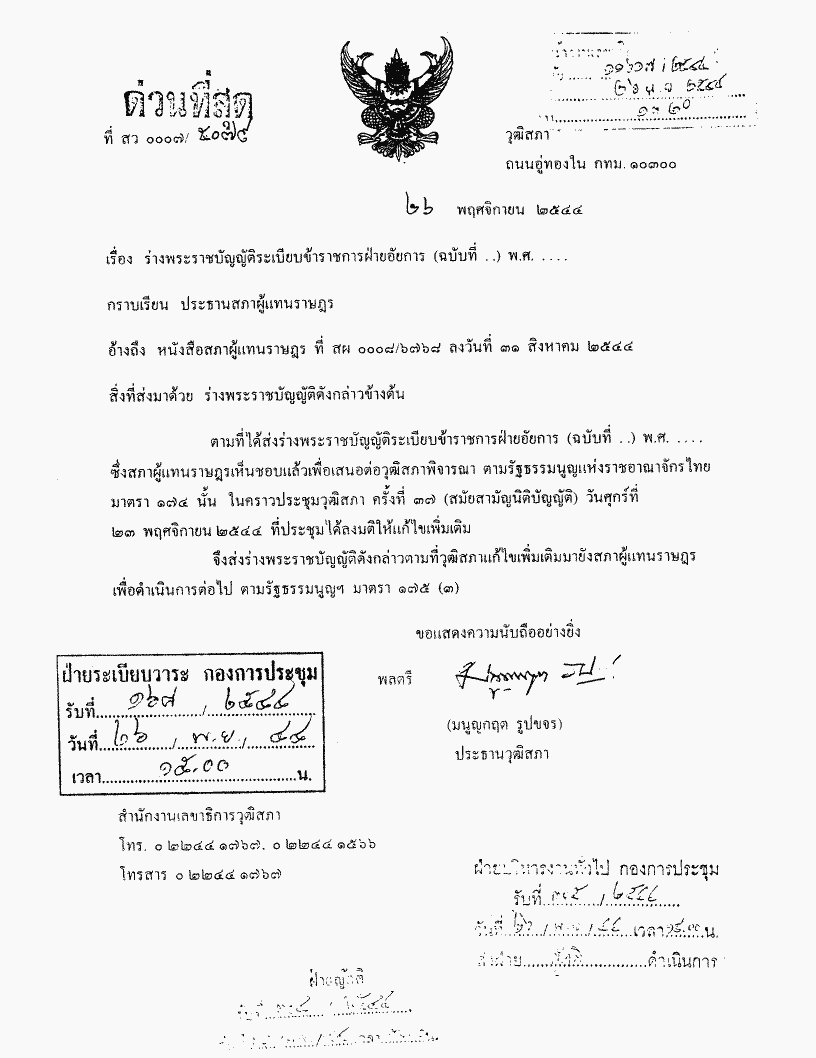 ด่วนที่สุด
ที่ สว ๐๐๐๗/ ๕๐๗๙
๒๕๔๔
วุฒิสภา
ถนนอู่ทองใน กทม. ๑๐๓๐๐
๒๖ พฤศจิกายน ๒๕๔๔
เรื่อง ร่างพระราชบัญญัติระเบียบข้าราชการฝ่ายอัยการ (ฉบับที่ ..) พ.ศ. ....
กราบเรียน ประธานสภาผู้แทนราษฎร
อ้างถึง หนังสือสภาผู้แทนราษฎร ที่ สผ ๐๐๐๘/๖๗๖๘ ลงวันที่ ๓๑ สิงหาคม ๒๕๔๔
สิ่งที่ส่งมาด้วย ร่างพระราชบัญญัติดังกล่าวข้างต้น
ตามที่ได้ส่งร่างพระราชบัญญัติระเบียบข้าราชการฝ่ายอัยการ (ฉบับที่ ..) พ.ศ. ....
ซึ่งสภาผู้แทนราษฎรเห็นชอบแล้วเพื่อเสนอต่อวุฒิสภาพิจารณา ตามรัฐธรรมนูญแห่งราชอาณาจักรไทย
มาตรา ๑๗๔ นั้น ในคราวประชุมวุฒิสภา ครั้งที่ ๓๗ (สมัยสามัญนิติบัญญัติ) วันศุกร์ที่
๒๓ พฤศจิกายน ๒๕๔๔ ที่ประชุมได้ลงมติให้แก้ไขเพิ่มเติม
จึงส่งร่างพระราชบัญญัติดังกล่าวตามที่วุฒิสภาแก้ไขเพิ่มเติมมายังสภาผู้แทนราษฎร
เพื่อดำเนินการต่อไป ตามรัฐธรรมนูญฯ มาตรา ๑๗๕ (๓)
ขอแสดงความนับถืออย่างยิ่ง
พลตรี
(มนูญกฤต รูปขจร)
ประธานวุฒิสภา
ฝ่ายระเบียบวาระ กองการประชุม
รับที่ ๑๖๘ / ๒๕๔๔
วันที่ ๒๖ / พ.ย. / ๔๔
เวลา ๑๕.๐๐ น.
สำนักงานเลขาธิการวุฒิสภา
โทร. ๐ ๒๒๔๔ ๑๗๖๗, ๐ ๒๒๔๔ ๑๕๖๖
โทรสาร ๐ ๒๒๔๔ ๑๗๖๗
ฝ่ายบริหารงานทั่วไป กองการประชุม
รับที่ / ๒๕๔๔
วันที่ ๒๖ / พ.ย. / ๔๔ เวลา น.
ดำเนินการ
ฝ่ายญัตติ